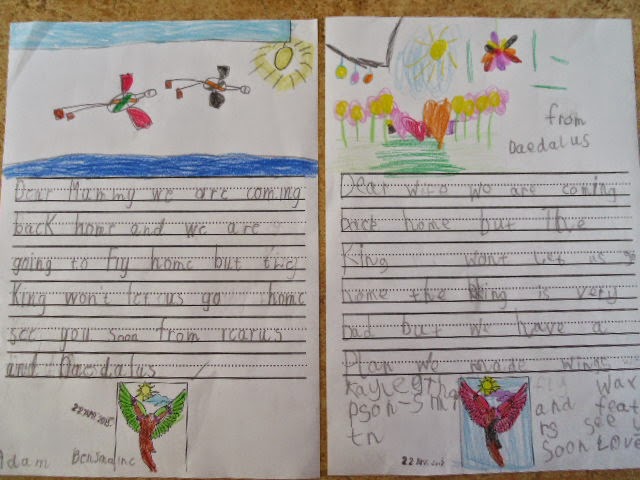 Dear Mammy we are coming
back home and we are
going to fly home but the
King won't let us go home
see you soon from Icarus
and Daedalus
Adam
from
Daedalus
Dear wife we are coming
back home but the
King wont let us go
home the King is very
bad but we have a
Plan we made wings
fly wax
and feat
rs see y
soon Love